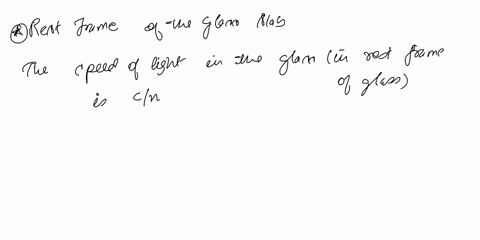 * Rest frame of the glass slab
The speed of light in the glass (in rest frame of glass)
is c/n